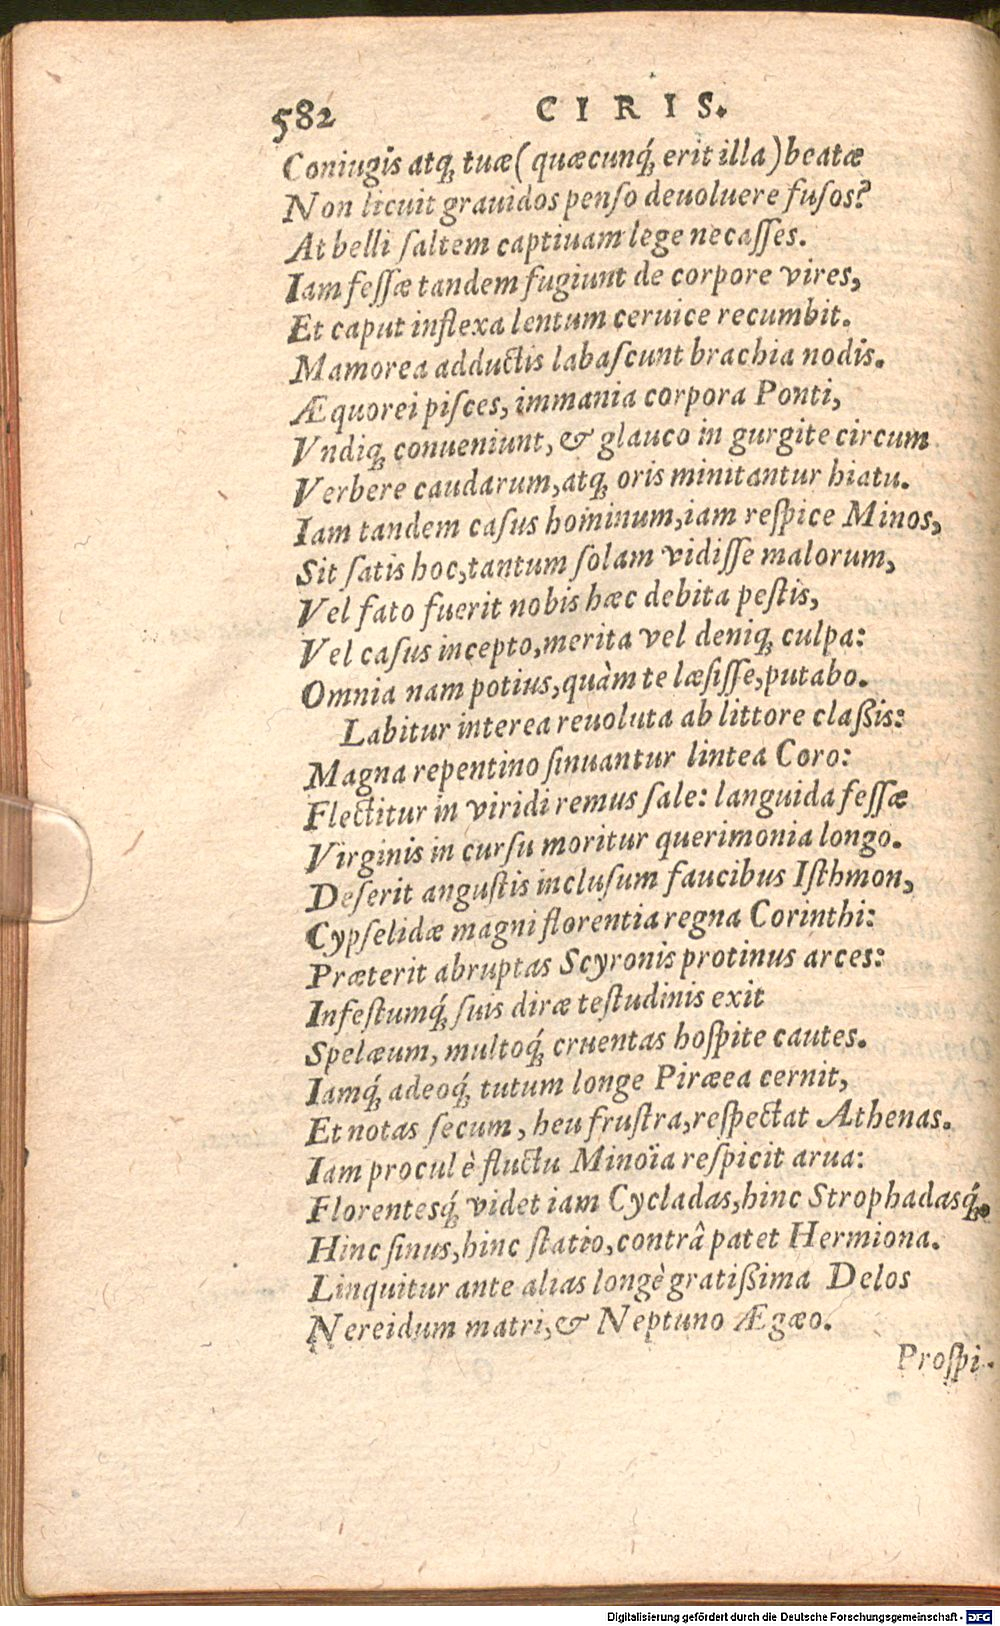 582 CIRIS.
Coniugis atq; tuæ (quæcunq́; erit illa) beatæ
Non licuit grauidos penso deuoluere fusos?
At belli saltem captiuam lege necasses.
Iam fessæ tandem fugiunt de corpore vires,
Et caput inflexa lentum ceruice recumbit.
Mamorea adductis labascunt brachia nodis.
Æquorei pisces, immania corpora Ponti,
Vndiq; conueniunt, & glauco in gurgite circum
Verbere caudarum, atq; oris minitantur hiatu.
Iam tandem casus hominum, iam respice Minos,
Sit satis hoc, tantum solam vidisse malorum,
Vel fato fuerit nobis hæc debita pestis,
Vel casus incepto, merita vel deniq; culpa:
Omnia nam potius, quàm te læsisse, putabo.
Labitur interea reuoluta ab littore claßis:
Magna repentino sinuantur lintea Coro:
Flectitur in viridi remus sale: languida fessæ
Virginis in cursu moritur querimonia longo.
Deserit angustis inclusum faucibus Isthmon,
Cypselidæ magni florentia regna Corinthi:
Præterit abruptas Scyronis protinus arces:
Infestumq́; suis diræ testudinis exit
Spelæum, multoq́; cruentas hospite cautes.
Iamq́; adeoq́; tutum longe Piræea cernit,
Et notas secum, heu frustra, respectat Athenas.
Iam procul è fluctu Minoïa respicit arua:
Florentesq́; videt iam Cycladas, hinc Strophadasq́;.
Hinc sinus, hinc statio, contrâ patet Hermiona.
Linquitur ante alias longè gratißima Delos
Nereidum matri, & Neptuno Ægæo.
Prospi-
Digitalisierung gefördert durch die Deutsche Forschungsgemeinschaft - DFG